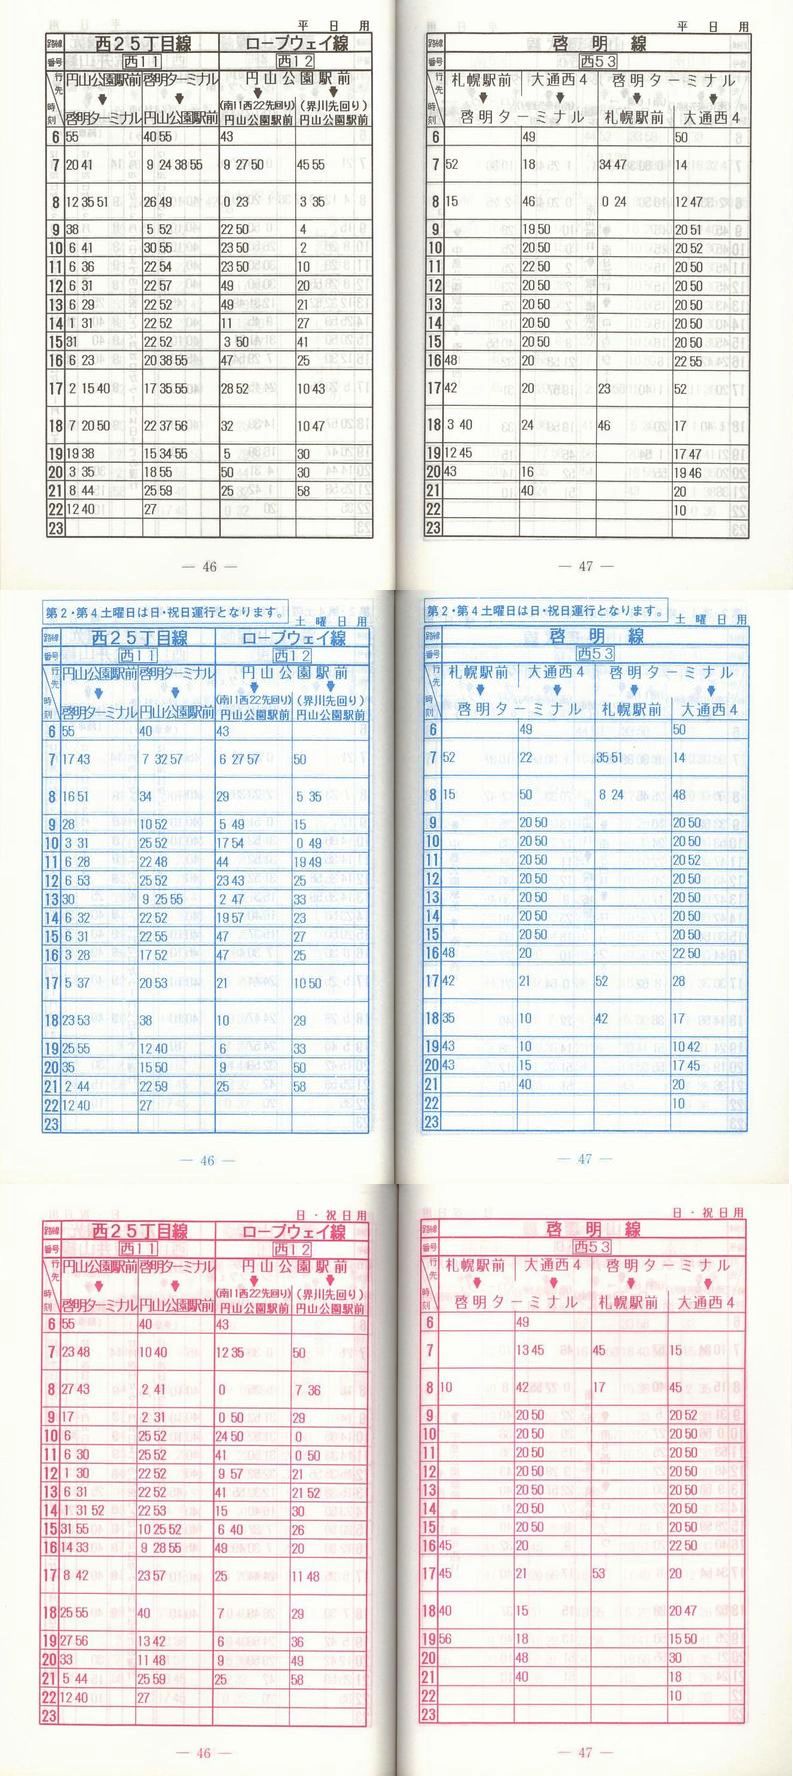 平日用
路線 西25丁目線 ロープウェイ線
番号 西11 西12
行先 円山公園駅前 啓明ターミナル 円山公園駅前
(南11西22先回り) (界川先回り)
時刻 啓明ターミナル 円山公園駅前 円山公園駅前 円山公園駅前
6 55 40 55 43
7 20 41 9 24 38 55 9 27 50 45 55
8 12 35 51 26 49 0 23 3 35
9 38 5 52 22 50 4
10 6 41 30 55 23 50 2
11 6 36 22 54 23 50 10
12 6 31 22 57 49 20
13 6 29 22 52 49 21
14 1 31 22 52 11 27
15 31 22 52 3 50 41
16 6 23 20 38 55 47 25
17 2 15 40 17 35 55 28 52 10 43
18 7 20 50 22 37 56 32 10 47
19 19 38 15 34 55 5 30
20 3 35 18 55 50 30
21 8 44 25 59 25 58
22 12 40 27
23
— 46 —
平日用
路線 啓明線
番号 西53
行先 札幌駅前 大通西4 啓明ターミナル
時刻 啓明ターミナル 札幌駅前 大通西4
6 49 50
7 52 18 34 47 14
8 15 46 0 24 12 47
9 19 50 20 51
10 20 50 20 52
11 22 50 20 50
12 20 50 20 50
13 20 50 20 50
14 20 50 20 50
15 20 50 20 50
16 48 20 22 55
17 42 20 23 52
18 3 40 24 46 17
19 12 45 17 47
20 43 16 19 46
21 40 20
22 10
23
— 47 —
第2・第4土曜日は日・祝日運行となります。
土曜日用
路線 西25丁目線 ロープウェイ線
番号 西11 西12
行先 円山公園駅前 啓明ターミナル 円山公園駅前
(南11西22先回り) (界川先回り)
時刻 啓明ターミナル 円山公園駅前 円山公園駅前 円山公園駅前
6 55 40 43
7 17 43 7 32 57 6 27 57 50
8 16 51 34 29 5 35
9 28 10 52 5 49 15
10 3 31 25 52 17 54 0 49
11 6 28 22 48 44 19 49
12 6 53 25 52 23 43 25
13 30 9 25 55 2 47 33
14 6 32 22 52 19 57 23
15 6 31 22 55 47 27
16 3 28 17 52 47 25
17 5 37 20 53 21 10 50
18 23 53 38 10 29
19 25 55 12 40 6 33
20 35 15 50 9 50
21 2 44 22 59 25 58
22 12 40 27
23
— 46 —
第2・第4土曜日は日・祝日運行となります。
土曜日用
路線 啓明線
番号 西53
行先 札幌駅前 大通西4 啓明ターミナル
時刻 啓明ターミナル 札幌駅前 大通西4
6 49 50
7 52 22 35 51 14
8 15 50 8 24 48
9 20 50 20 50
10 20 50 20 50
11 20 50 20 52
12 20 50 20 50
13 20 50 20 50
14 20 50 20 50
15 20 50 20 50
16 48 20 22 50
17 42 21 52 28
18 35 10 42 17
19 43 10 10 42
20 43 15 17 45
21 40 20
22 10
23
— 47 —
日・祝日用
路線 西25丁目線 ロープウェイ線
番号 西11 西12
行先 円山公園駅前 啓明ターミナル 円山公園駅前
(南11西22先回り) (界川先回り)
時刻 啓明ターミナル 円山公園駅前 円山公園駅前 円山公園駅前
6 55 40 43
7 23 48 10 40 12 35 50
8 27 43 2 41 0 7 36
9 17 2 31 0 50 29
10 6 25 52 24 50 0
11 6 30 25 52 41 0 50
12 1 30 22 52 9 57 21
13 6 31 22 52 41 21 52
14 1 31 52 22 53 15 30
15 31 55 10 25 52 6 40 26
16 14 33 9 28 55 49 20
17 8 42 23 57 25 11 48
18 25 55 40 7 29
19 27 56 13 42 6 36
20 33 11 48 9 49
21 5 44 25 59 25 58
22 12 40 27
23
— 46 —
日・祝日用
路線 啓明線
番号 西53
行先 札幌駅前 大通西4 啓明ターミナル
時刻 啓明ターミナル 札幌駅前 大通西4
6 49
7 13 45 45 15
8 10 42 17 45
9 20 50 20 52
10 20 50 20 50
11 20 50 20 50
12 20 50 20 50
13 20 50 20 50
14 20 50 20 50
15 20 50 20 50
16 45 20 22 50
17 45 21 53 20
18 40 15 20 47
19 56 18 15 50
20 48 30
21 40 18
22 10
23
— 47 —